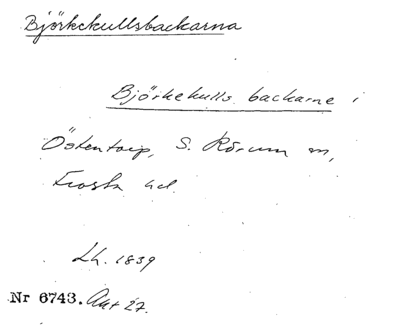 Björkekullsbackarna
Björkekulls backarne i
Östentorp, S. Rörum sn,
Frosta hd.
Lh. 1839
Nr 6743. Akt 27.